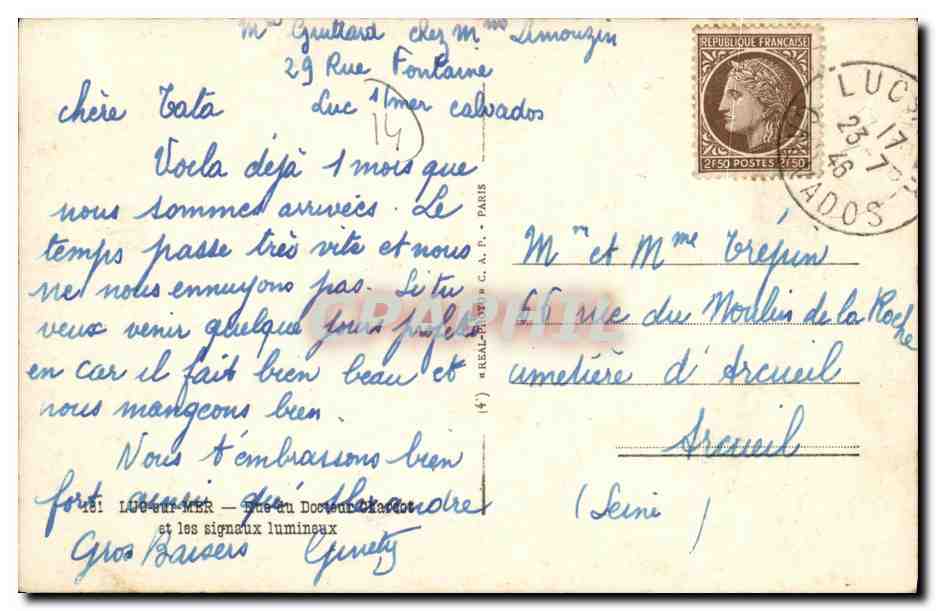 Mme Gruttard chez Mme Limouzin
29 Rue Fontaine
Luc s/mer calvados
14
chère Tata
Voila déjà 1 mois que
nous sommes arrivées. Le
temps passe très vite et nous
ne nous ennuyons pas. Si tu
veux venir quelque jours profite
en car il fait bien beau et
nous mangeons bien.
Nous t'embrassons bien
fort ainsi qu' Alexandre
Gros Baisers Ginety
181 LUC-sur-MER — Rue du Docteur Charcot
et les signaux lumineux
(4°) « REAL-PHOTO » C. A. P. - PARIS
REPUBLIQUE FRANÇAISE
2F50 POSTES 2F50
LUC
17
23-7
46
CALVADOS
Mr et Mme Trépin
66 rue du Moulin de la Roche
cimetière d'Arcueil
Arcueil
(Seine)
CPAPHIL